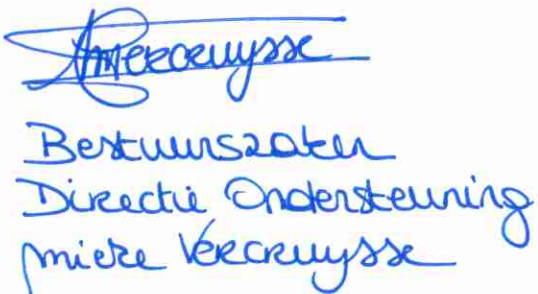 AMVercruysse
Bestuurszaken
Directie Ondersteuning
Mieke Vercruysse